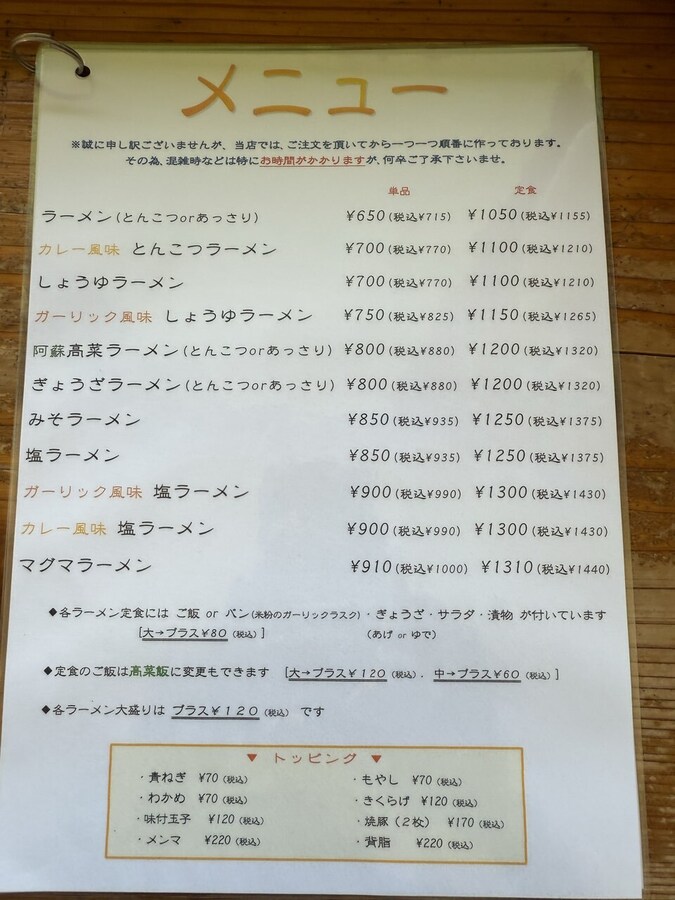 メニュー
※誠に申し訳ございませんが、当店では、ご注文を頂いてから一つ一つ順番に作っております。
その為、混雑時などは特にお時間がかかりますが、何卒ご了承下さいませ。
単品 定食
ラーメン(とんこつorあっさり) ¥650(税込¥715) ¥1050(税込¥1155)
カレー風味 とんこつラーメン ¥700(税込¥770) ¥1100(税込¥1210)
しょうゆラーメン ¥700(税込¥770) ¥1100(税込¥1210)
ガーリック風味 しょうゆラーメン ¥750(税込¥825) ¥1150(税込¥1265)
阿蘇高菜ラーメン(とんこつorあっさり) ¥800(税込¥880) ¥1200(税込¥1320)
ぎょうざラーメン(とんこつorあっさり) ¥800(税込¥880) ¥1200(税込¥1320)
みそラーメン ¥850(税込¥935) ¥1250(税込¥1375)
塩ラーメン ¥850(税込¥935) ¥1250(税込¥1375)
ガーリック風味 塩ラーメン ¥900(税込¥990) ¥1300(税込¥1430)
カレー風味 塩ラーメン ¥900(税込¥990) ¥1300(税込¥1430)
マグマラーメン ¥910(税込¥1000) ¥1310(税込¥1440)
◆各ラーメン定食には ご飯 or パン(米粉のガーリックラスク)・ぎょうざ・サラダ・漬物 が付いています
[大→プラス¥80(税込)] (あげ or ゆで)
◆定食のご飯は高菜飯に変更もできます [大→プラス¥120(税込)．中→プラス¥60(税込)]
◆各ラーメン大盛りは プラス¥120(税込) です
▼ トッピング ▼
・青ねぎ ¥70(税込) ・もやし ¥70(税込)
・わかめ ¥70(税込) ・きくらげ ¥120(税込)
・味付玉子 ¥120(税込) ・焼豚(2枚) ¥170(税込)
・メンマ ¥220(税込) ・背脂 ¥220(税込)